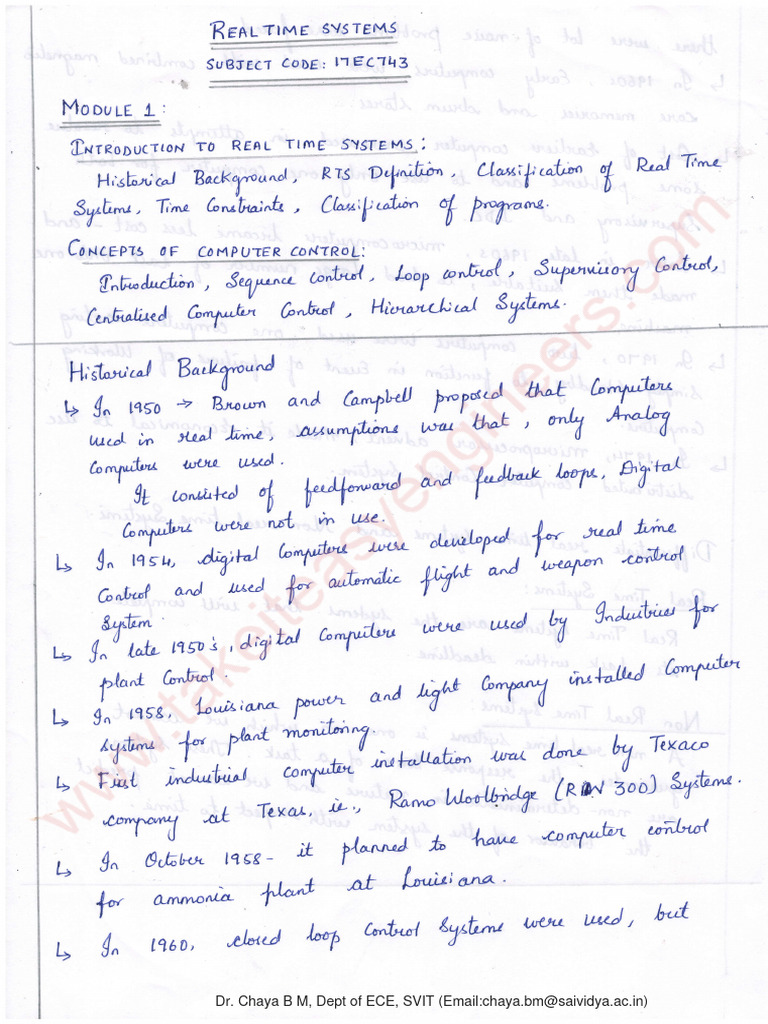 REAL TIME SYSTEMS
SUBJECT CODE: 17EC743
MODULE 1:
INTRODUCTION TO REAL TIME SYSTEMS:
Historical Background, RTS Definition, Classification of Real Time
Systems, Time Constraints, Classification of programs.
CONCEPTS OF COMPUTER CONTROL:
Introduction, Sequence control, Loop control, Supervisory Control,
Centralised Computer Control, Hierarchical Systems.
Historical Background
↳ In 1950 → Brown and Campbell proposed that Computers
used in real time, assumptions was that, only Analog
Computers were used.
It consisted of feedforward and feedback loops, Digital
Computers were not in use.
↳ In 1954, digital Computers were developed for real time
Control and used for automatic flight and weapon control
System.
↳ In late 1950's, digital Computers were used by Industries for
plant Control.
↳ In 1958, Louisiana power and light Company installed Computer
systems for plant monitoring.
↳ First industrial computer installation was done by Texaco
company at Texas, ie., Ramo Woolbridge (RW 300) Systems.
↳ In October 1958 - it planned to have computer control
for ammonia plant at Louisiana.
↳ In 1960, closed loop Control Systems were used, but
www.takeiteasyengineers.com
Dr. Chaya B M, Dept of ECE, SVIT (Email:chaya.bm@saividya.ac.in)